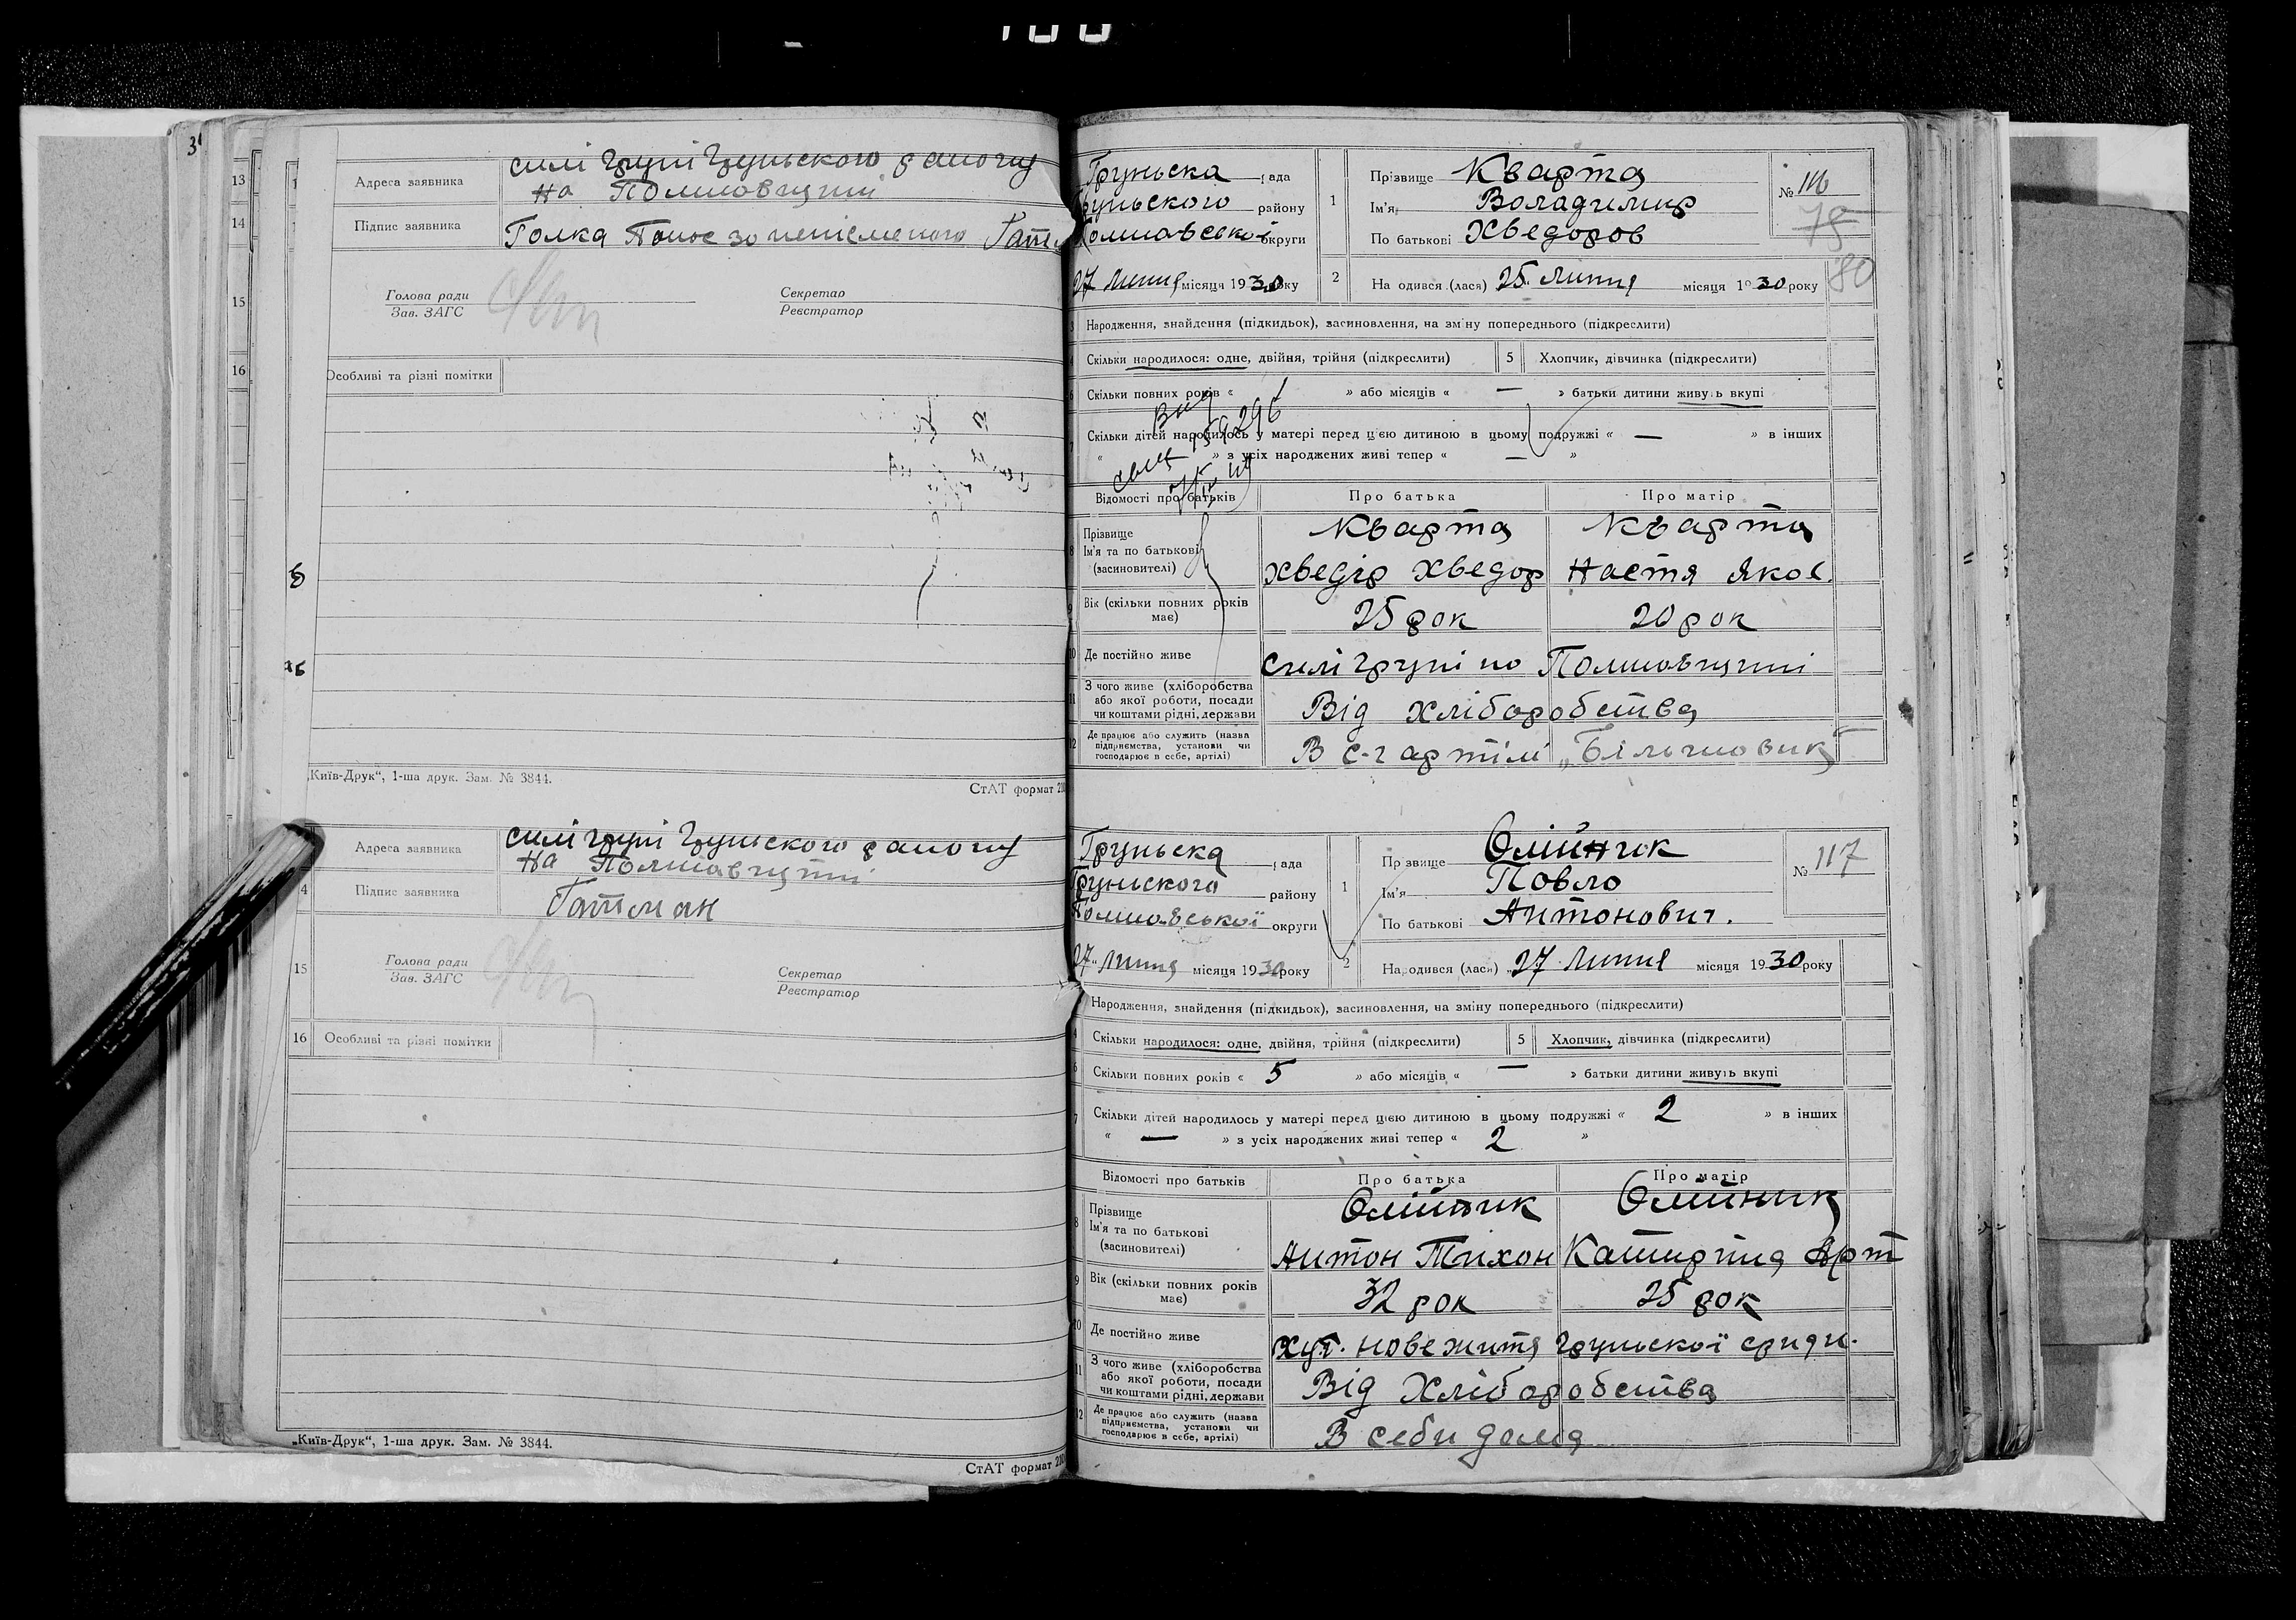 13
Адреса заявника
силі Груні Груньского району
на Полтавщині
14
Підпис заявника
Голка Панос за неписменого Гатм
15
Голова ради
Зав. ЗАГС
Секретар
Реєстратор
16
Особливі та різні помітки
„Київ-Друк“, 1-ша друк. Зам. № 3844.
СтАТ формат
Адреса заявника
силі Груні Груньского району
на Полтавщині
4
Підпис заявника
Гатман
15
Голова ради
Зав. ЗАГС
Секретар
Реєстратор
16
Особливі та різні помітки
„Київ-Друк“, 1-ша друк. Зам. № 3844.
СтАТ формат
Груньска рада
Груньского району
Полтавської округи
27 Липня місяця 1930 року
1
Прізвище Кварта
Ім'я Воладимир
По батькові Хведоров
№ 116
79
80
2
Народився (лася) 25 Липня місяця 1930 року
Народження, знайдення (підкидьок), засиновлення, на зміну попереднього (підкреслити)
Скільки народилося: одне, двійня, трійня (підкреслити)
5 Хлопчик, дівчинка (підкреслити)
Скільки повних років « 1 » або місяців « — » батьки дитини живуть вкупі
Скільки дітей народилось у матері перед цією дитиною в цьому подружжі « — » в інших
« » з усіх народжених живі тепер « — »
Відомості про батьків
Про батька
Про матір
8
Прізвище
Ім'я та по батькові
(засиновителі)
Кварта
Хведір Хведор
Кварта
Настя Яков.
9
Вік (скільки повних років має)
25 рок
20 рок
10
Де постійно живе
силі Груні на Полтавщині
11
З чого живе (хліборобства
або якої роботи, посади
чи коштами рідні, держави
Від Хліборобства
12
Де працює або служить (назва
підприємства, установи чи
господарює в себе, артілі)
В с-г артілі „Більшовик“
Груньска рада
Груньского району
Полтавської округи
27 Липня місяця 1930 року
1
Прізвище Олійник
Ім'я Повло
По батькові Антонович.
№ 117
2
Народився (лася) 27 Липня місяця 1930 року
Народження, знайдення (підкидьок), засиновлення, на зміну попереднього (підкреслити)
Скільки народилося: одне, двійня, трійня (підкреслити)
5 Хлопчик, дівчинка (підкреслити)
Скільки повних років « 5 » або місяців « — » батьки дитини живуть вкупі
7
Скільки дітей народилось у матері перед цією дитиною в цьому подружжі « 2 » в інших
« — » з усіх народжених живі тепер « 2 »
Відомості про батьків
Про батька
Про матір
8
Прізвище
Ім'я та по батькові
(засиновителі)
Олійник
Антон Тихон
Олійник
Катирина
9
Вік (скільки повних років має)
32 рок
25 рок
10
Де постійно живе
хут. нове життя Груньскої с/ради.
11
З чого живе (хліборобства
або якої роботи, посади
чи коштами рідні, держави
Від Хліборобства
12
Де працює або служить (назва
підприємства, установи чи
господарює в себе, артілі)
В себи дома